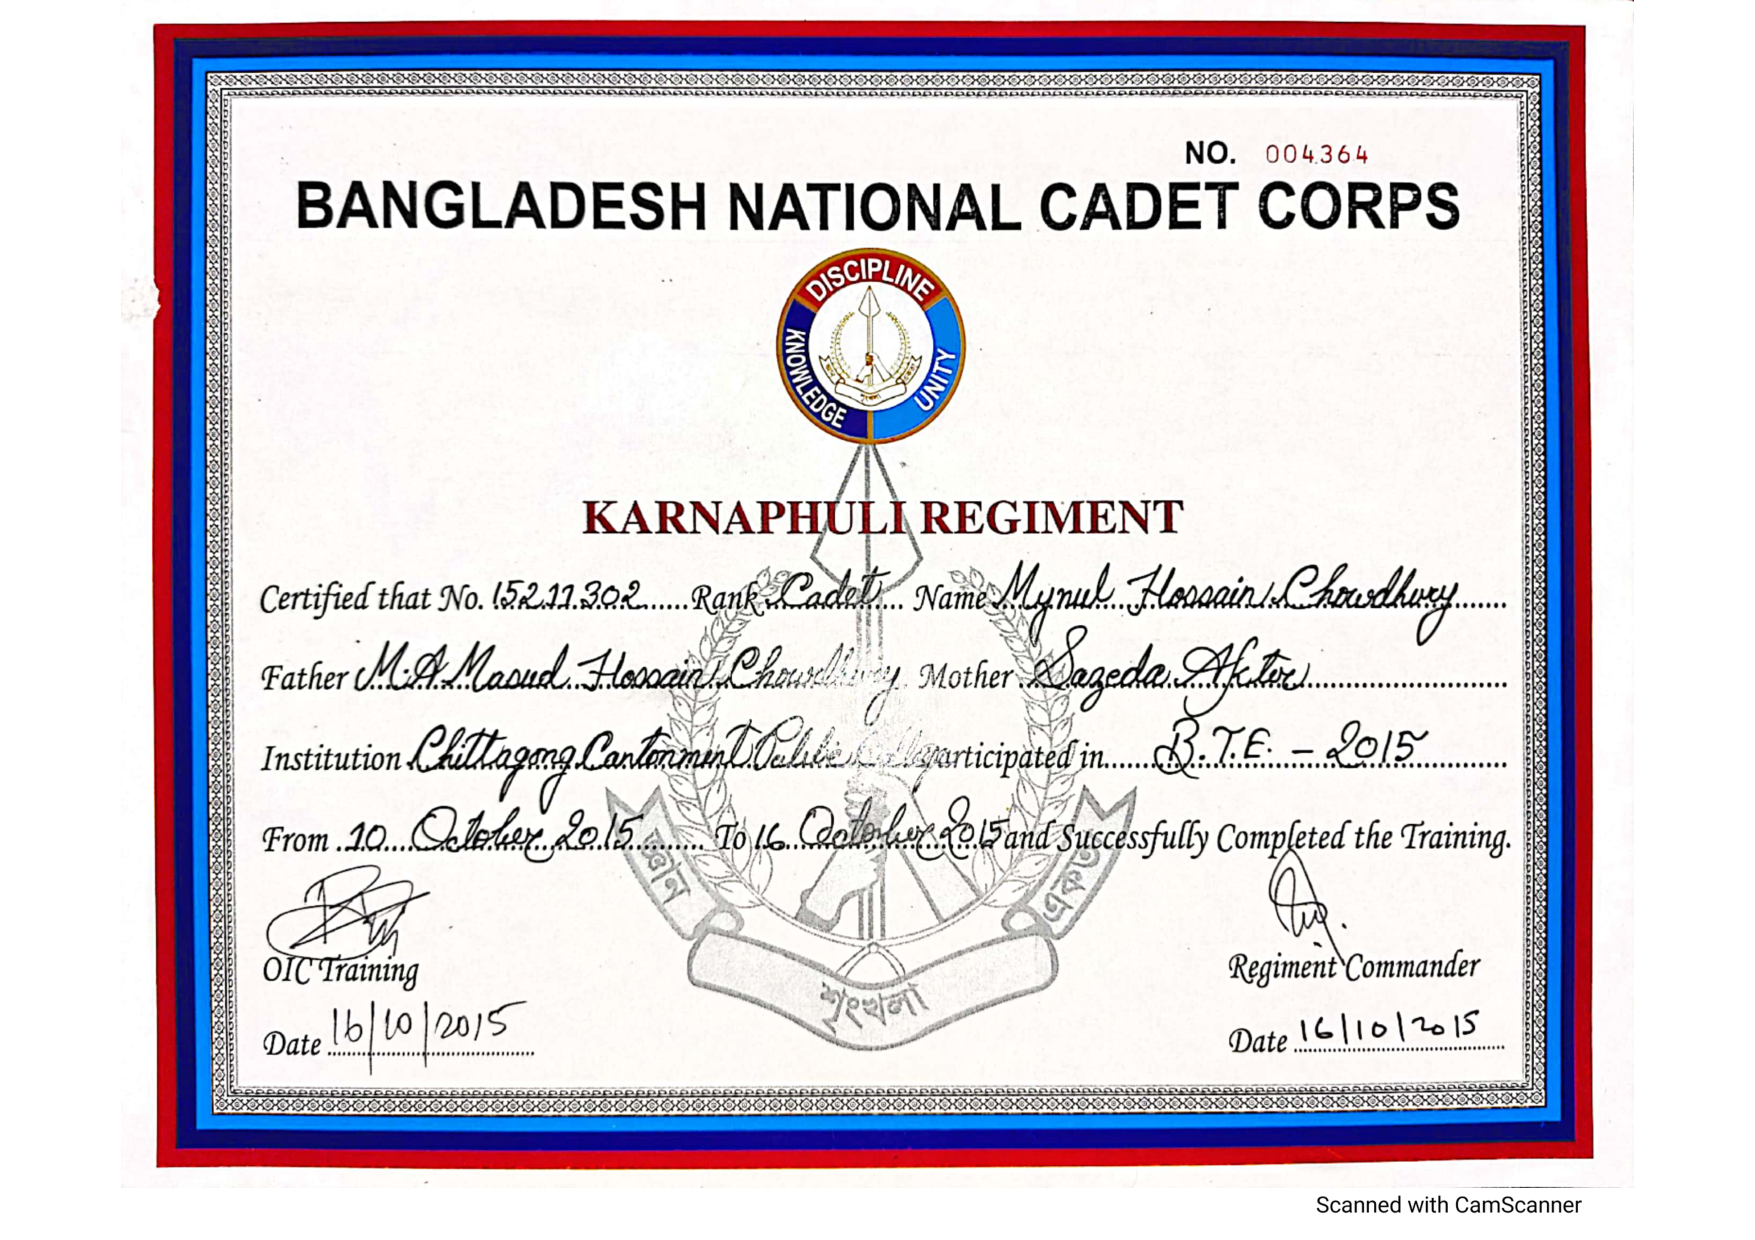 NO. 004364
BANGLADESH NATIONAL CADET CORPS
DISCIPLINE
KNOWLEDGE
UNITY
KARNAPHULI REGIMENT
Certified that No. 15211302 Rank Cadet Name Mynul Hossain Chowdhury
Father M.A Masud Hossain Chowdhury Mother Sazeda Akter
Institution Chittagong Cantonment Public participated in B.T.E. - 2015
From 10 October 2015 To 16 October 2015 and Successfully Completed the Training.
জ্ঞান
একতা
শৃংখলা
OIC Training
Regiment Commander
Date 16/10/2015
Date 16/10/2015
Scanned with CamScanner